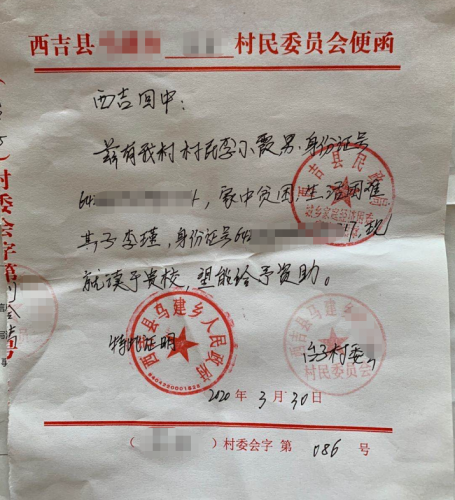 西吉县 村民委员会便函
西吉回中:
兹有我村村民李尔霞男,身份证号
64 1,家中贫困,生活困难
其子李瑾,身份证号64 ,现
就读于贵校,望能给予资助。
特此证明
台子村委,
2020年3月30日
( )村委会字 第 086 号
西吉县民政局
西吉县马建乡人民政府
西吉县马建乡
村民委员会
村委会字第